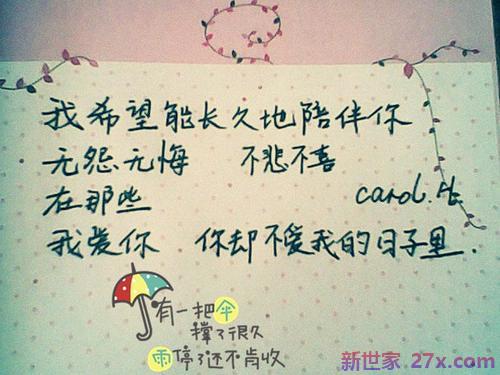 我希望能长久地陪伴你
无怨无悔 不悲不喜
在那些 carol.
我爱你 你却不爱我的日子里.
有一把伞
撑了很久
雨停了还不肯收
新世家.27x.com